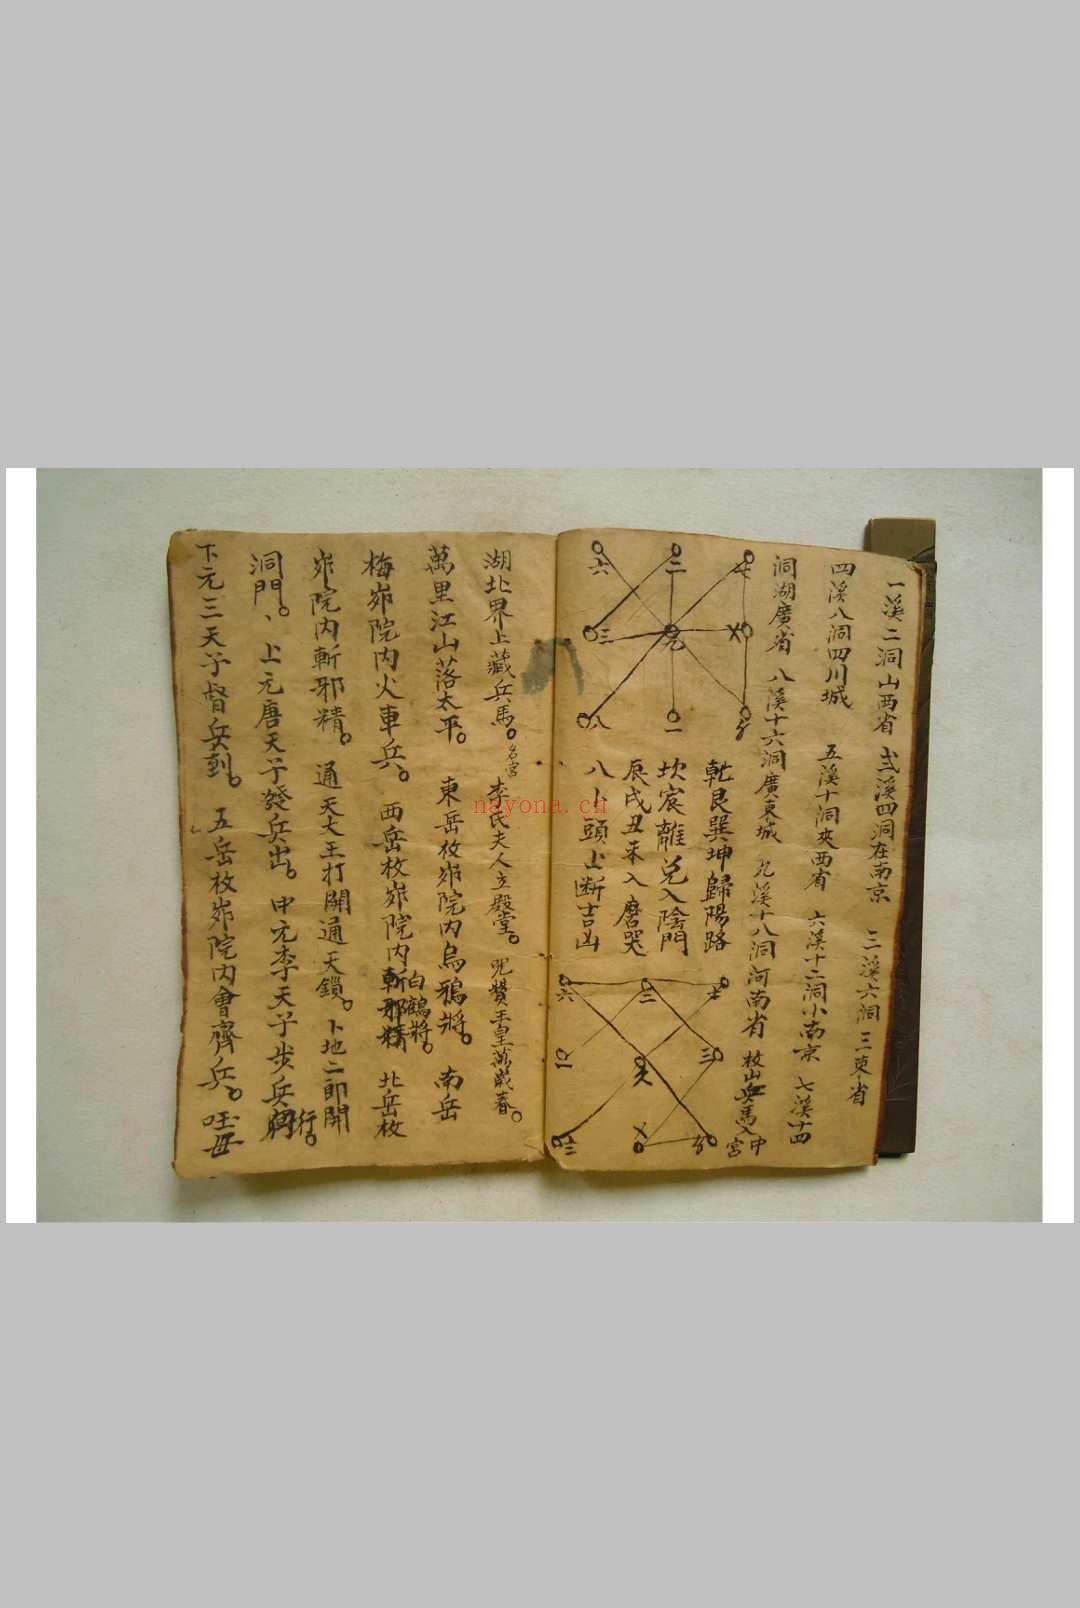 一溪二洞山西省 弍溪四洞在南京 三溪六洞三東省
四溪八洞四川城 五溪十洞夾西省 六溪十二洞小南京 七溪十四
洞湖廣省 八溪十六洞廣東城 九溪十八洞河南省 枚山兵馬入中宮
七 二 六
九 三
一 八
乾艮巽坤歸陽路
坎宸離兌入陰門
辰戌丑未入磨哭
八卜頭上斷吉凶
七 二 六
三
湖北界上藏兵馬。 李氏夫人立殿堂。 咒贊玉皇萬歲春。
萬里江山落太平。 東岳枚𡵆院内烏鴉將。 南岳
梅𡵆院内火車兵。 西岳枚𡵆院内白鶴將。 北岳枚
𡵆院内斬邪精。 通天大王打開通天鎖。 卜地二郎開
洞門。、上元唐天子發兵出。 中元李天子步兵行。
下元三天子督兵到。 五岳枚𡵆院内會齊兵。
nayona.cn